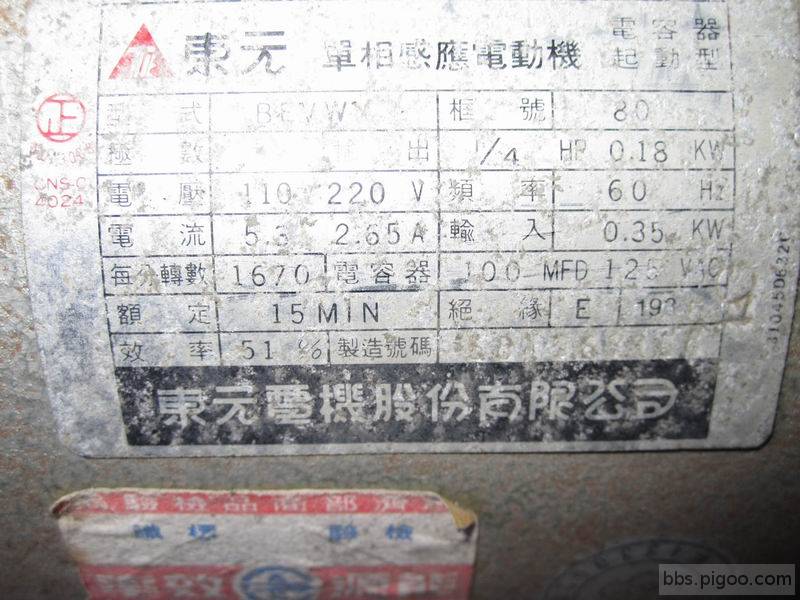 東元 單相感應電動機 電容器
起動型
正
型式 框號 80
極數 出 1/4 HP 0.18 KW
CNS-C
4024
電壓 110 220 V 頻率 60 Hz
電流 5.3 2.65A 輸入 0.35 KW
每分轉數 1670 電容器 100 MFD 125 VAC
額定 15MIN 絕緣 E
效率 51 % 製造號碼
東元電機股份有限公司
驗檢品商部濟
檢驗 標識
源
bbs.pigoo.com